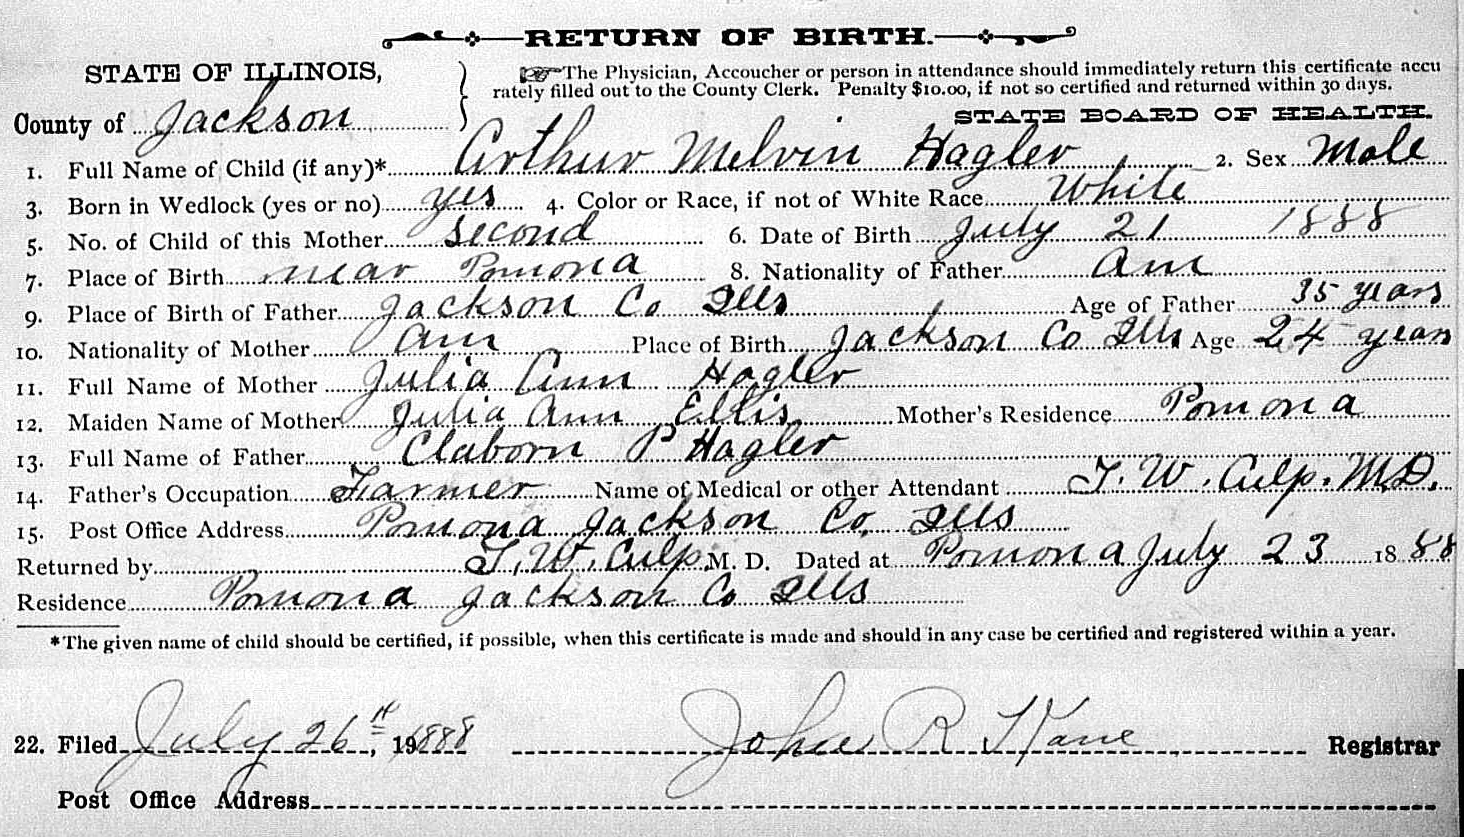 RETURN OF BIRTH.
STATE OF ILLINOIS,
County of Jackson
☞The Physician, Accoucher or person in attendance should immediately return this certificate accu
rately filled out to the County Clerk. Penalty $10.00, if not so certified and returned within 30 days.
STATE BOARD OF HEALTH.
1. Full Name of Child (if any)* Arthur Melvin Hagler 2. Sex Male
3. Born in Wedlock (yes or no) yes 4. Color or Race, if not of White Race White
5. No. of Child of this Mother second 6. Date of Birth July 21 1888
7. Place of Birth near Pomona 8. Nationality of Father Am
9. Place of Birth of Father Jackson Co Ills Age of Father 35 years
10. Nationality of Mother Am Place of Birth Jackson Co Ills Age 24 years
11. Full Name of Mother Julia Ann Hagler
12. Maiden Name of Mother Julia Ann Ellis Mother's Residence Pomona
13. Full Name of Father Claborn P Hagler
14. Father's Occupation Farmer Name of Medical or other Attendant T. W. Culp. M.D.
15. Post Office Address Pomona Jackson Co, Ills
Returned by T. W. Culp. M. D. Dated at Pomona July 23 1888
Residence Pomona Jackson Co Ills
*The given name of child should be certified, if possible, when this certificate is made and should in any case be certified and registered within a year.
22. Filed July 26th, 19 1888 John R Kane Registrar
Post Office Address